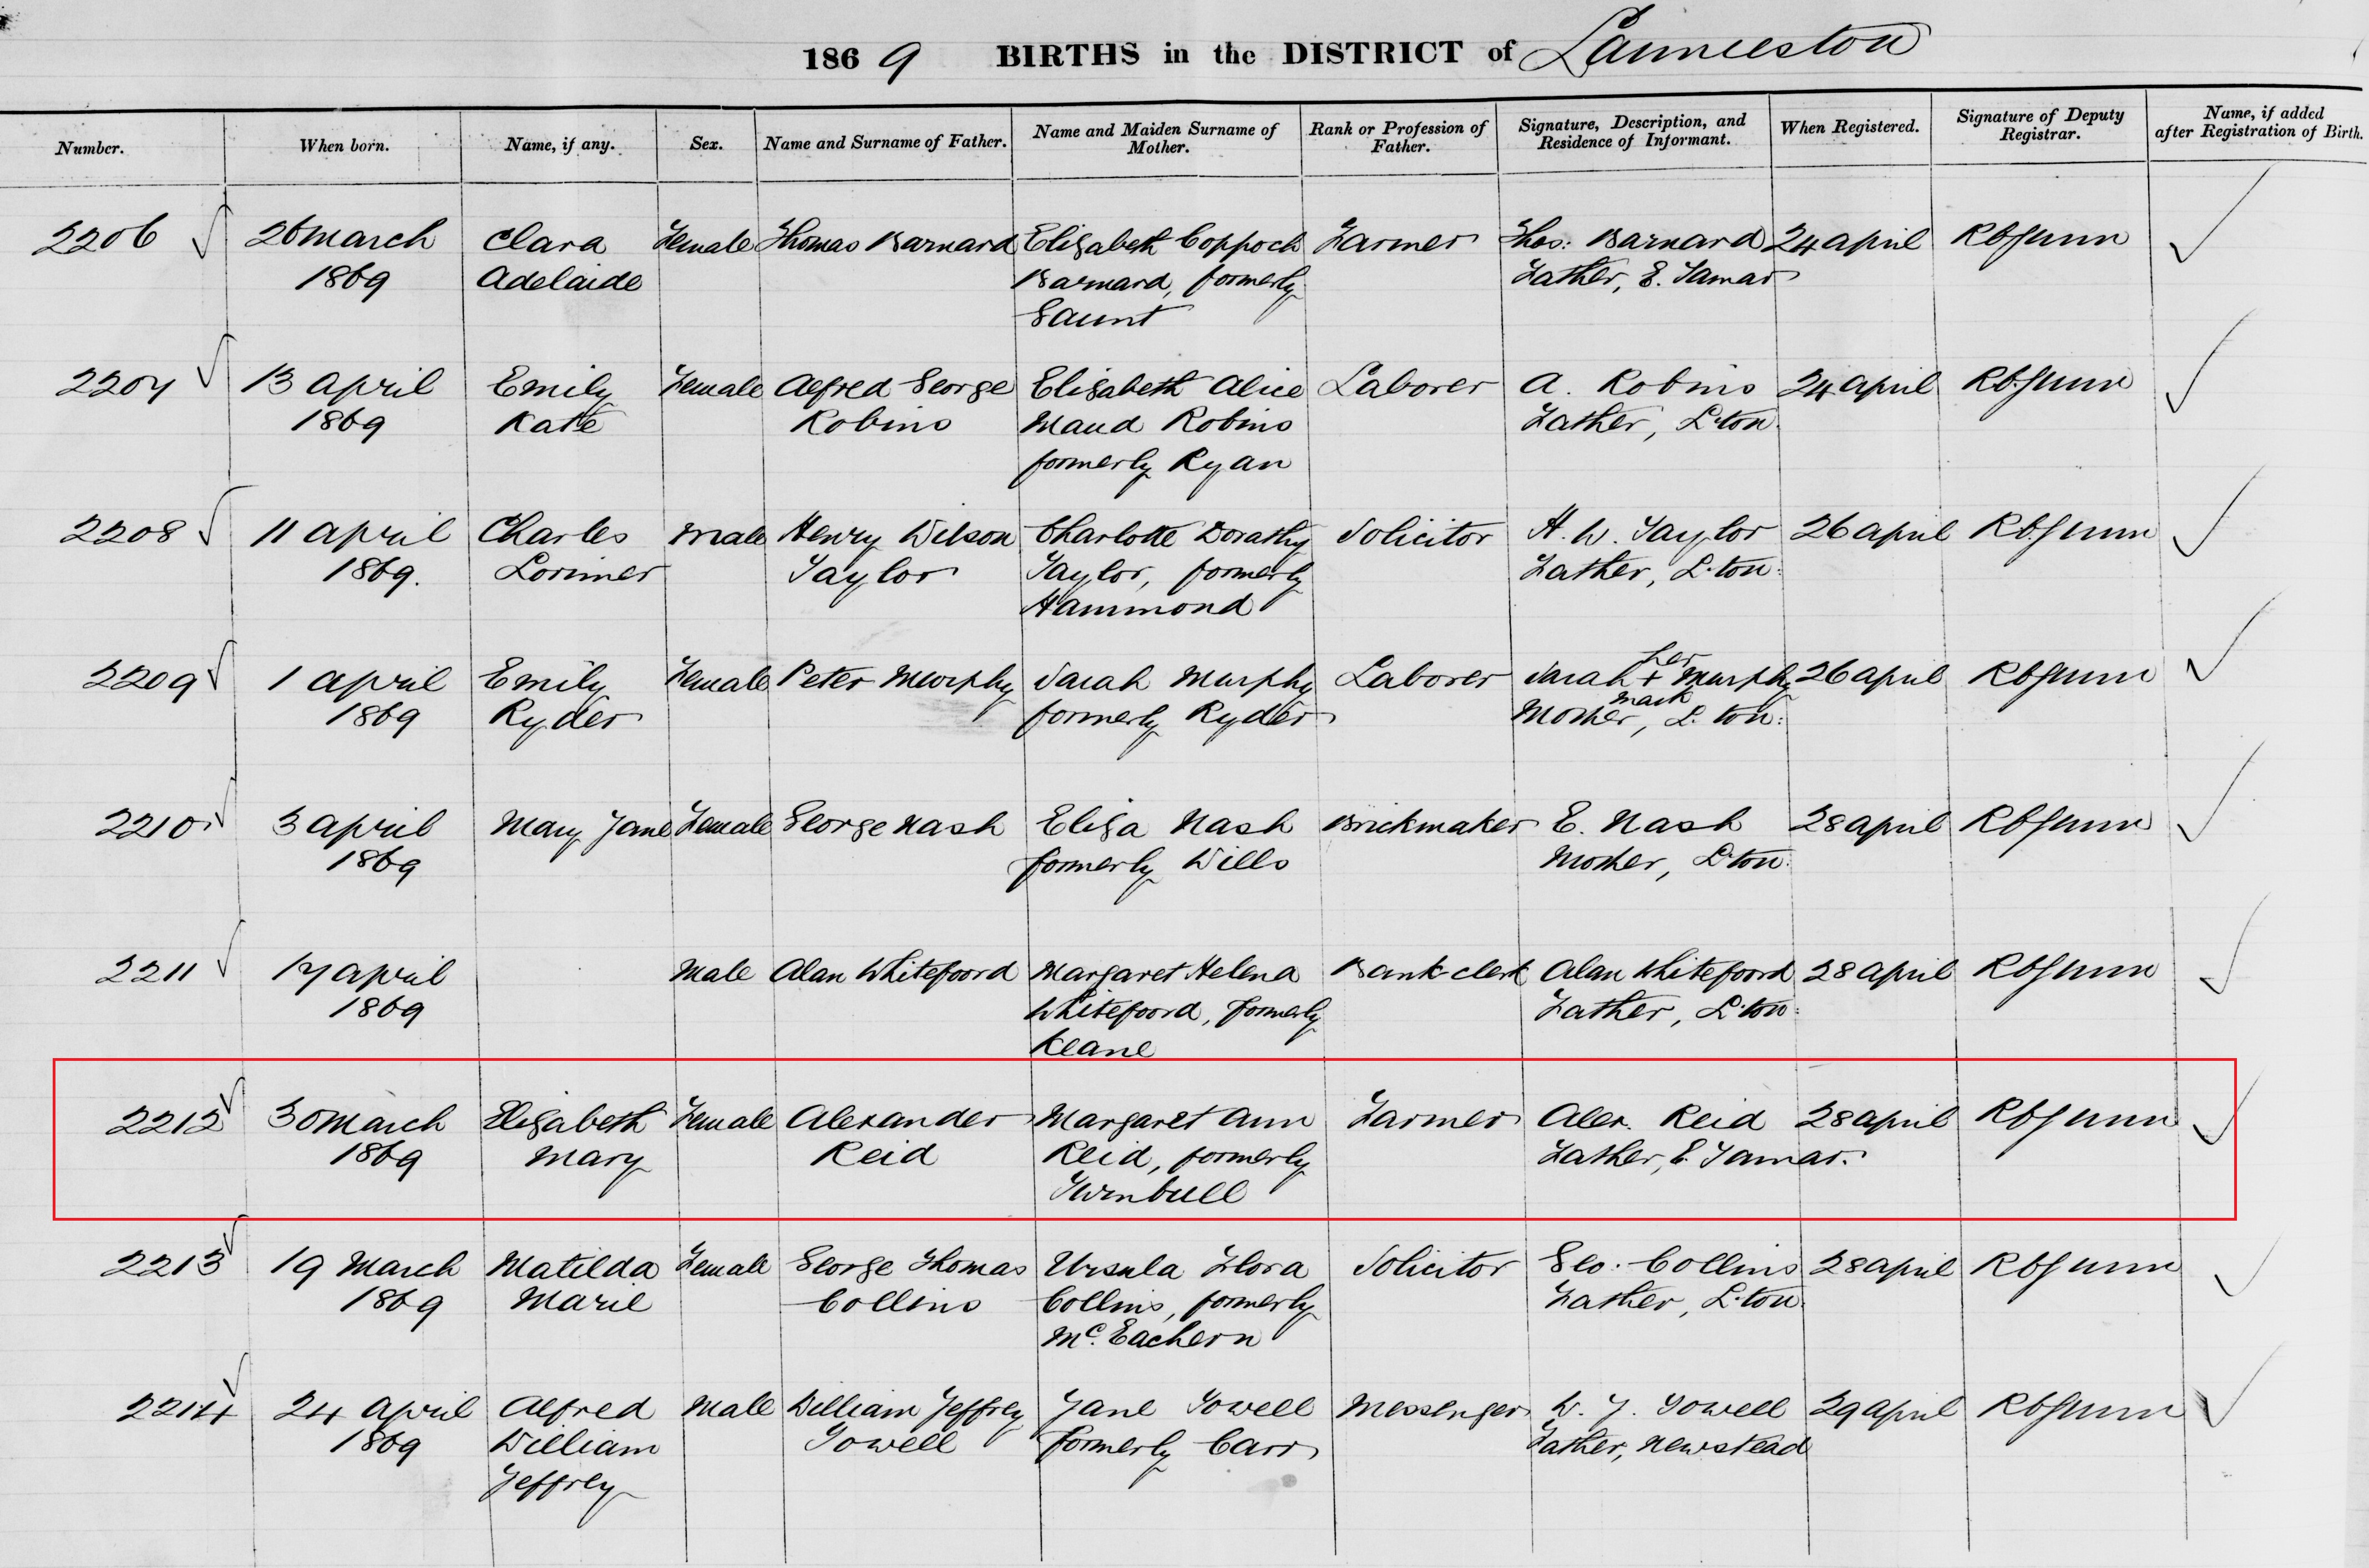 1869 BIRTHS in the DISTRICT of Launceston
Number. When born. Name, if any. Sex. Name and Surname of Father. Name and Maiden Surname of Mother. Rank or Profession of Father. Signature, Description, and Residence of Informant. When Registered. Signature of Deputy Registrar. Name, if added after Registration of Birth.
2206 26 March Clara Female Thomas Barnard Elizabeth Coppock Farmer Thos: Barnard 24 April RbGunn
1869 Adelaide Barnard, formerly Father, E. Tamar
Gaunt
2207 13 April Emily Female Alfred George Elizabeth Alice Laborer A. Robins 24 April RbGunn
1869 Kate Robins Maud Robins Father, L.ton
formerly Ryan
2208 11 April Charles Male Henry Wilson Charlotte Dorathy Solicitor H. W. Taylor 26 April RbGunn
1869. Lorimer Taylor Taylor, formerly Father, L.ton:
Hammond
2209 1 April Emily Female Peter Murphy Sarah Murphy Laborer Sarah her + mark Murphy 26 April RbGunn
1869 Ryder formerly Ryder Mother, L. ton:
2210 3 April Mary Jane Female George Nash Eliza Nash Brickmaker E. Nash 28 April RbGunn
1869 formerly Wills Mother, L.ton:
2211 17 April Male Alan Whitefoord Margaret Helena Bank clerk Alan Whitefoord 28 April RbGunn
1869 Whitefoord, formerly Father, L.ton:
Keane
2212 30 March Elizabeth Female Alexander Margaret Ann Farmer Alex. Reid 28 April RbGunn
1869 Mary Reid Reid, formerly Father, E. Tamar.
Turnbull
2213 19 March Matilda Female George Thomas Ursula Flora Solicitor Geo. Collins 28 April RbGunn
1869 Marie Collins Collins, formerly Father, L.ton:
Mc. Eachern
2214 24 April Alfred Male William Jeffrey Jane Towell Messenger W. J. Towell 29 April RbGunn
1869 William Towell formerly Carr Father, Newstead
Jeffrey